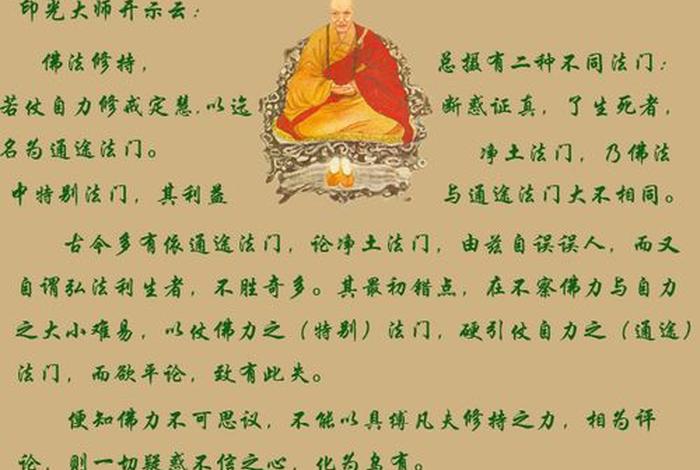 印光大师开示云：
佛法修持， 总摄有二种不同法门：
若仗自力修戒定慧，以迄 断惑证真，了生死者，
名为通途法门。 净土法门，乃佛法
中特别法门，其利益 与通途法门大不相同。
古今多有依通途法门，论净土法门，由兹自误误人，而又
自谓弘法利生者，不胜奇多。其最初错点，在不察佛力与自力
之大小难易，以仗佛力之（特别）法门，硬引仗自力之（通途）
法门，而欲平论，致有此失。
使知佛力不可思议，不能以具缚凡夫修持之力，相为评
论，则一切疑惑不信之心，化为乌有。